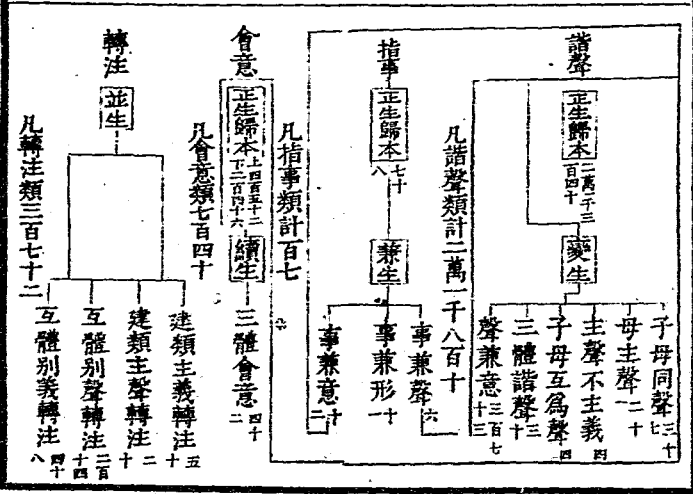 諧聲
正生歸本 二萬一千三百四十
變生
子母同聲 三十七
母主聲 二十一
主聲不主義 四
子母互爲聲 四
三體諧聲 三十
聲兼意 三百七十三
凡諧聲類計二萬一千八百十
指事
正生歸本 七十八
兼生
事兼聲 六
事兼形 十一
事兼意 十二
凡指事類計百七
會意
正生歸本 上四百五十二 下二百四十六
續生
三體會意 四十二
凡會意類七百四十
轉注
並生
建類主義轉注 五十
建類主聲轉注 二十
互體別聲轉注 二百十四
互體別義轉注 四十八
凡轉注類三百七十二